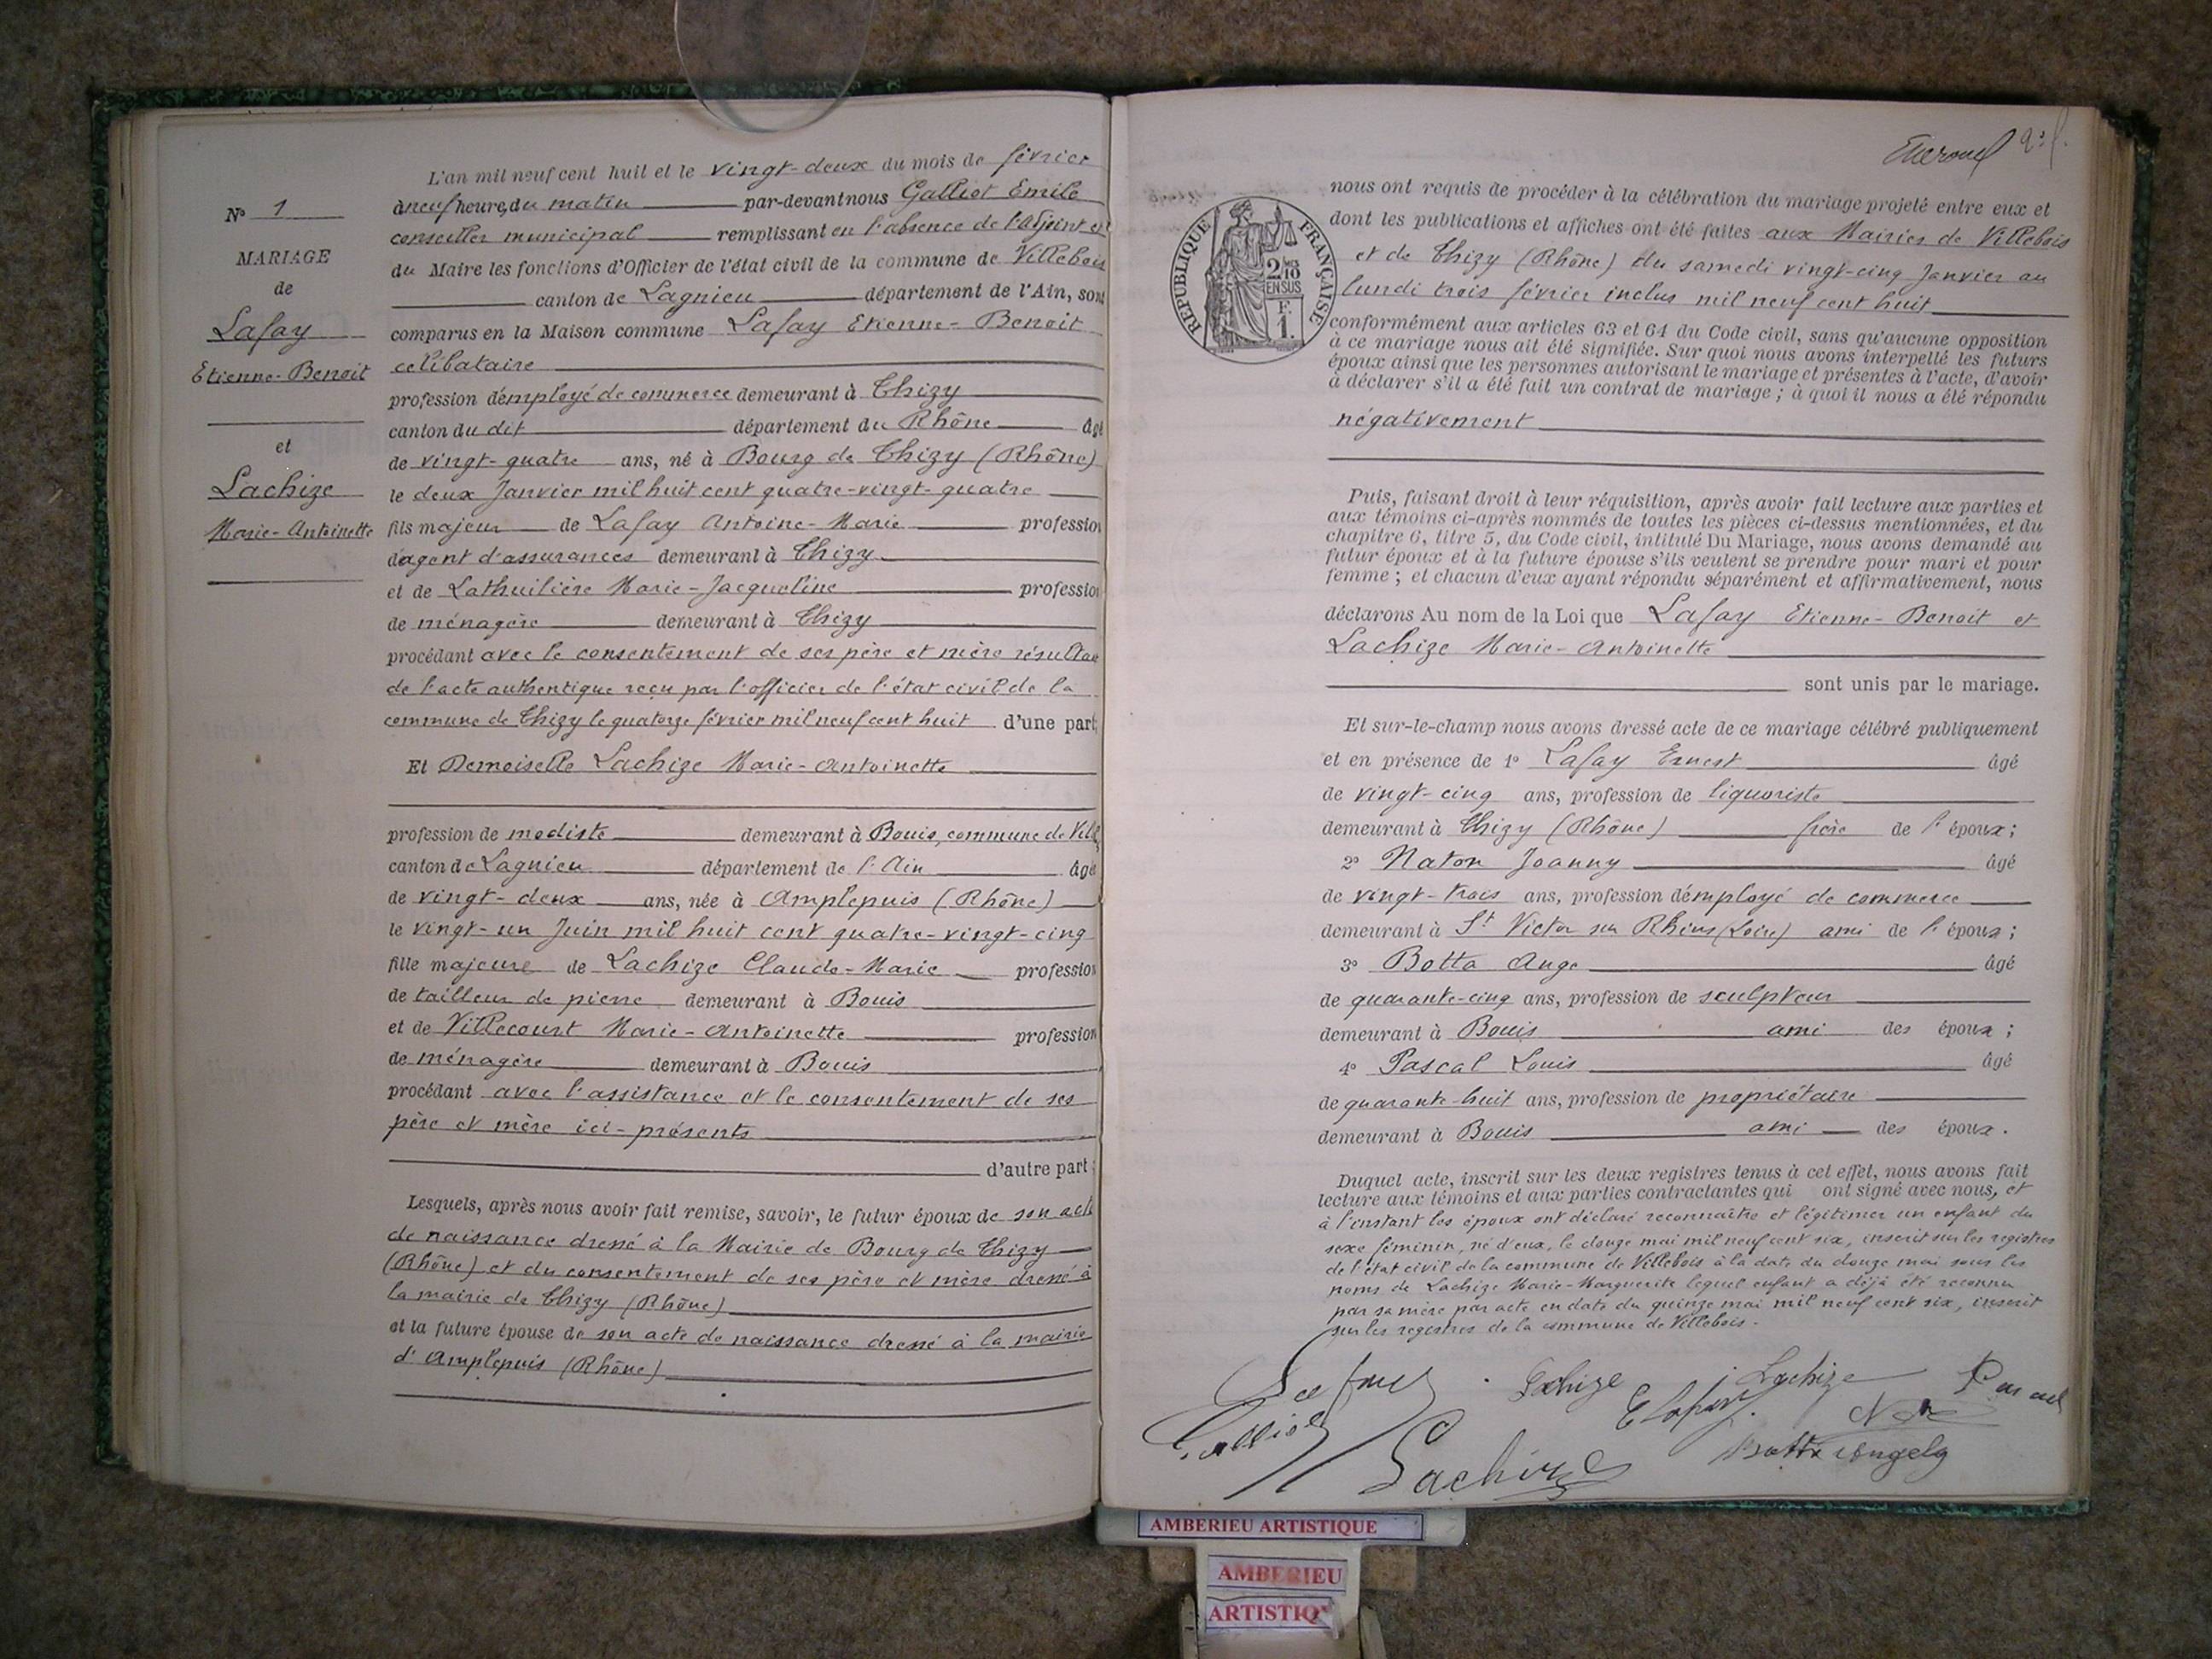 N° 1
MARIAGE
de
Lafay
Etienne-Benoit
et
Lachize
Marie-Antoinette
L'an mil neuf cent huit et le vingt-deux du mois de février
à neuf heures du matin par-devant nous Galliot Emile
conseiller municipal remplissant en l'absence de l'Adjoint et
du Maire les fonctions d'Officier de l'état civil de la commune de Villebois
canton de Lagnieu département de l'Ain, sont
comparus en la Maison commune Lafay Etienne-Benoit
célibataire
profession d'employé de commerce demeurant à Thizy
canton du dit département du Rhône âgé
de vingt-quatre ans, né à Bourg de Thizy (Rhône)
le deux Janvier mil huit cent quatre-vingt-quatre
fils majeur de Lafay Antoine-Marie profession
d'agent d'assurances demeurant à Thizy
et de Lathuilière Marie-Jacqueline profession
de ménagère demeurant à Thizy
procédant avec le consentement de ses père et mère résultant
de l'acte authentique reçu par l'officier de l'état civil de la
commune de Thizy le quatorze février mil neuf cent huit d'une part;
Et Demoiselle Lachize Marie-Antoinette
profession de modiste demeurant à Bouis, commune de Vill
canton de Lagnieu département de l'Ain âgée
de vingt-deux ans, née à Amplepuis (Rhône)
le vingt-un Juin mil huit cent quatre-vingt-cinq
fille majeure de Lachize Claude-Marie profession
de tailleur de pierre demeurant à Bouis
et de Villecourt Marie-Antoinette profession
de ménagère demeurant à Bouis
procédant avec l'assistance et le consentement de ses
père et mère ici-présents
d'autre part;
Lesquels, après nous avoir fait remise, savoir, le futur époux de son acte
de naissance dressé à la Mairie de Bourg de Thizy
(Rhône) et du consentement de ses père et mère dressé à
la mairie de Thizy (Rhône)
et la future épouse de son acte de naissance dressé à la mairie
d'Amplepuis (Rhône)
RÉPUBLIQUE FRANÇAISE
2/10
EN SUS
F.
1
nous ont requis de procéder à la célébration du mariage projeté entre eux et
dont les publications et affiches ont été faites aux Mairies de Villebois
et de Thizy (Rhône) du samedi vingt-cinq Janvier au
lundi trois février inclus mil neuf cent huit
conformément aux articles 63 et 64 du Code civil, sans qu'aucune opposition
à ce mariage nous ait été signifiée. Sur quoi nous avons interpellé les futurs
époux ainsi que les personnes autorisant le mariage et présentes à l'acte, d'avoir
à déclarer s'il a été fait un contrat de mariage; à quoi il nous a été répondu
négativement
Puis, faisant droit à leur réquisition, après avoir fait lecture aux parties et
aux témoins ci-après nommés de toutes les pièces ci-dessus mentionnées, et du
chapitre 6, titre 5, du Code civil, intitulé Du Mariage, nous avons demandé au
futur époux et à la future épouse s'ils veulent se prendre pour mari et pour
femme; et chacun d'eux ayant répondu séparément et affirmativement, nous
déclarons Au nom de la Loi que Lafay Etienne-Benoit et
Lachize Marie-Antoinette
sont unis par le mariage.
Et sur-le-champ nous avons dressé acte de ce mariage célébré publiquement
et en présence de 1° Lafay Ernest âgé
de vingt-cinq ans, profession de liquoriste
demeurant à Thizy (Rhône) frère de l'époux;
2° Naton Joanny âgé
de vingt-trois ans, profession d'employé de commerce
demeurant à St Victor sur Rhins (Loire) ami de l'époux;
3° Botta Ange âgé
de quarante-cinq ans, profession de sculpteur
demeurant à Bouis ami des époux;
4° Pascal Louis âgé
de quarante-huit ans, profession de propriétaire
demeurant à Bouis ami des époux.
Duquel acte, inscrit sur les deux registres tenus à cet effet, nous avons fait
lecture aux témoins et aux parties contractantes qui ont signé avec nous, et
à l'instant les époux ont déclaré reconnaître et légitimer un enfant du
sexe féminin, né d'eux, le douze mai mil neuf cent six, inscrit sur les registres
de l'état civil de la commune de Villebois à la date du douze mai sous les
noms de Lachize Marie-Marguerite lequel enfant a déjà été reconnu
par sa mère par acte en date du quinze mai mil neuf cent six, inscrit
sur les registres de la commune de Villebois.
Lafay Lachize Lachize Pascal
Galliot E Lafay
Lachize Botta Angelo
AMBERIEU ARTISTIQUE
AMBERIEU
ARTISTIQ